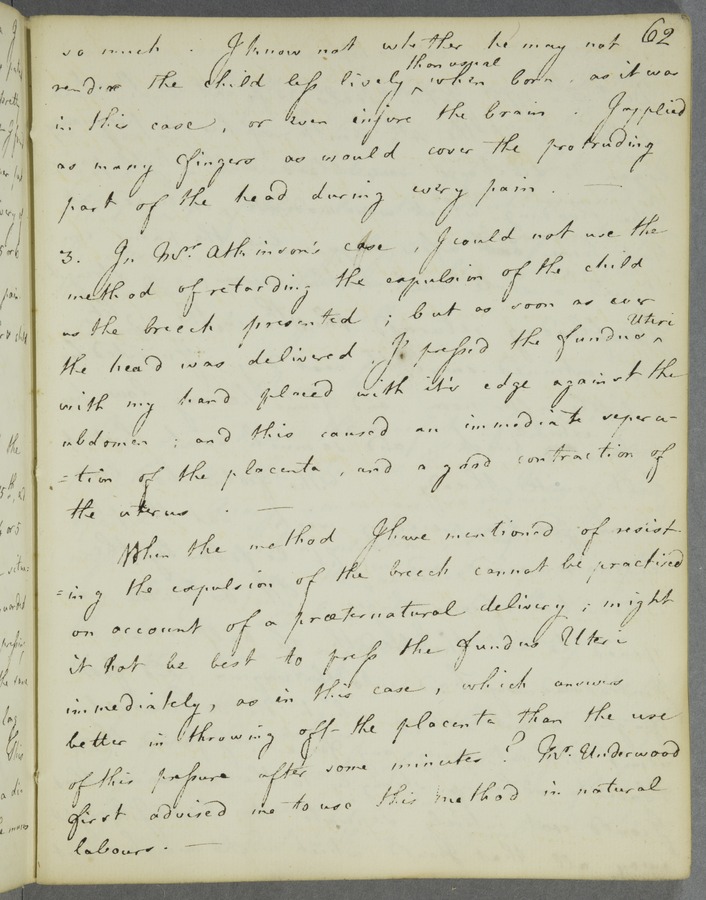 62
so much . I know not whether he may not
render the child less lively than usual when born, as it was
in this case, or even injure the brain . I applied
as many fingers as would cover the protruding
part of the head during every pain . —
3. In Mrs. Atkinson's case, I could not use the
method of retarding the expulsion of the child
as the breech presented ; but as soon as ever
the head was delivered, I pressed the fundus Uteri
with my hand placed with it's edge against the
abdomen ; and this caused an immediate separa-
=tion of the placenta, and a good contraction of
the uterus . —
When the method I have mentioned of resist-
=ing the expulsion of the breech cannot be practised
on account of a præternatural delivery ; might
it not be best to press the fundus Uteri
immediately, as in this case, which answers
better in throwing off the placenta than the use
of this pressure after some minutes ? Mr. Underwood
first advised me to use this method in natural
labours. —